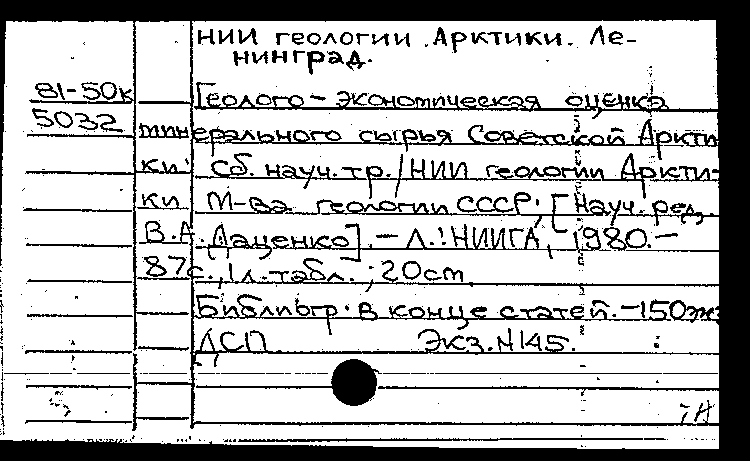 НИИ геологии Арктики. Ле-
нинград.
81-50к Геолого-экономическая оценка
5032 минерального сырья Советской Аркти
ки: Сб. науч. тр. / НИИ геологии Аркти-
ки М-ва геологии СССР; [Науч. ред.
В.А. Даценко]. - Л.: НИИГА, 1980. -
87с., 1л. табл.; 20см.
Библиогр. в конце статей. - 150 экз
ДСП Экз. №145.